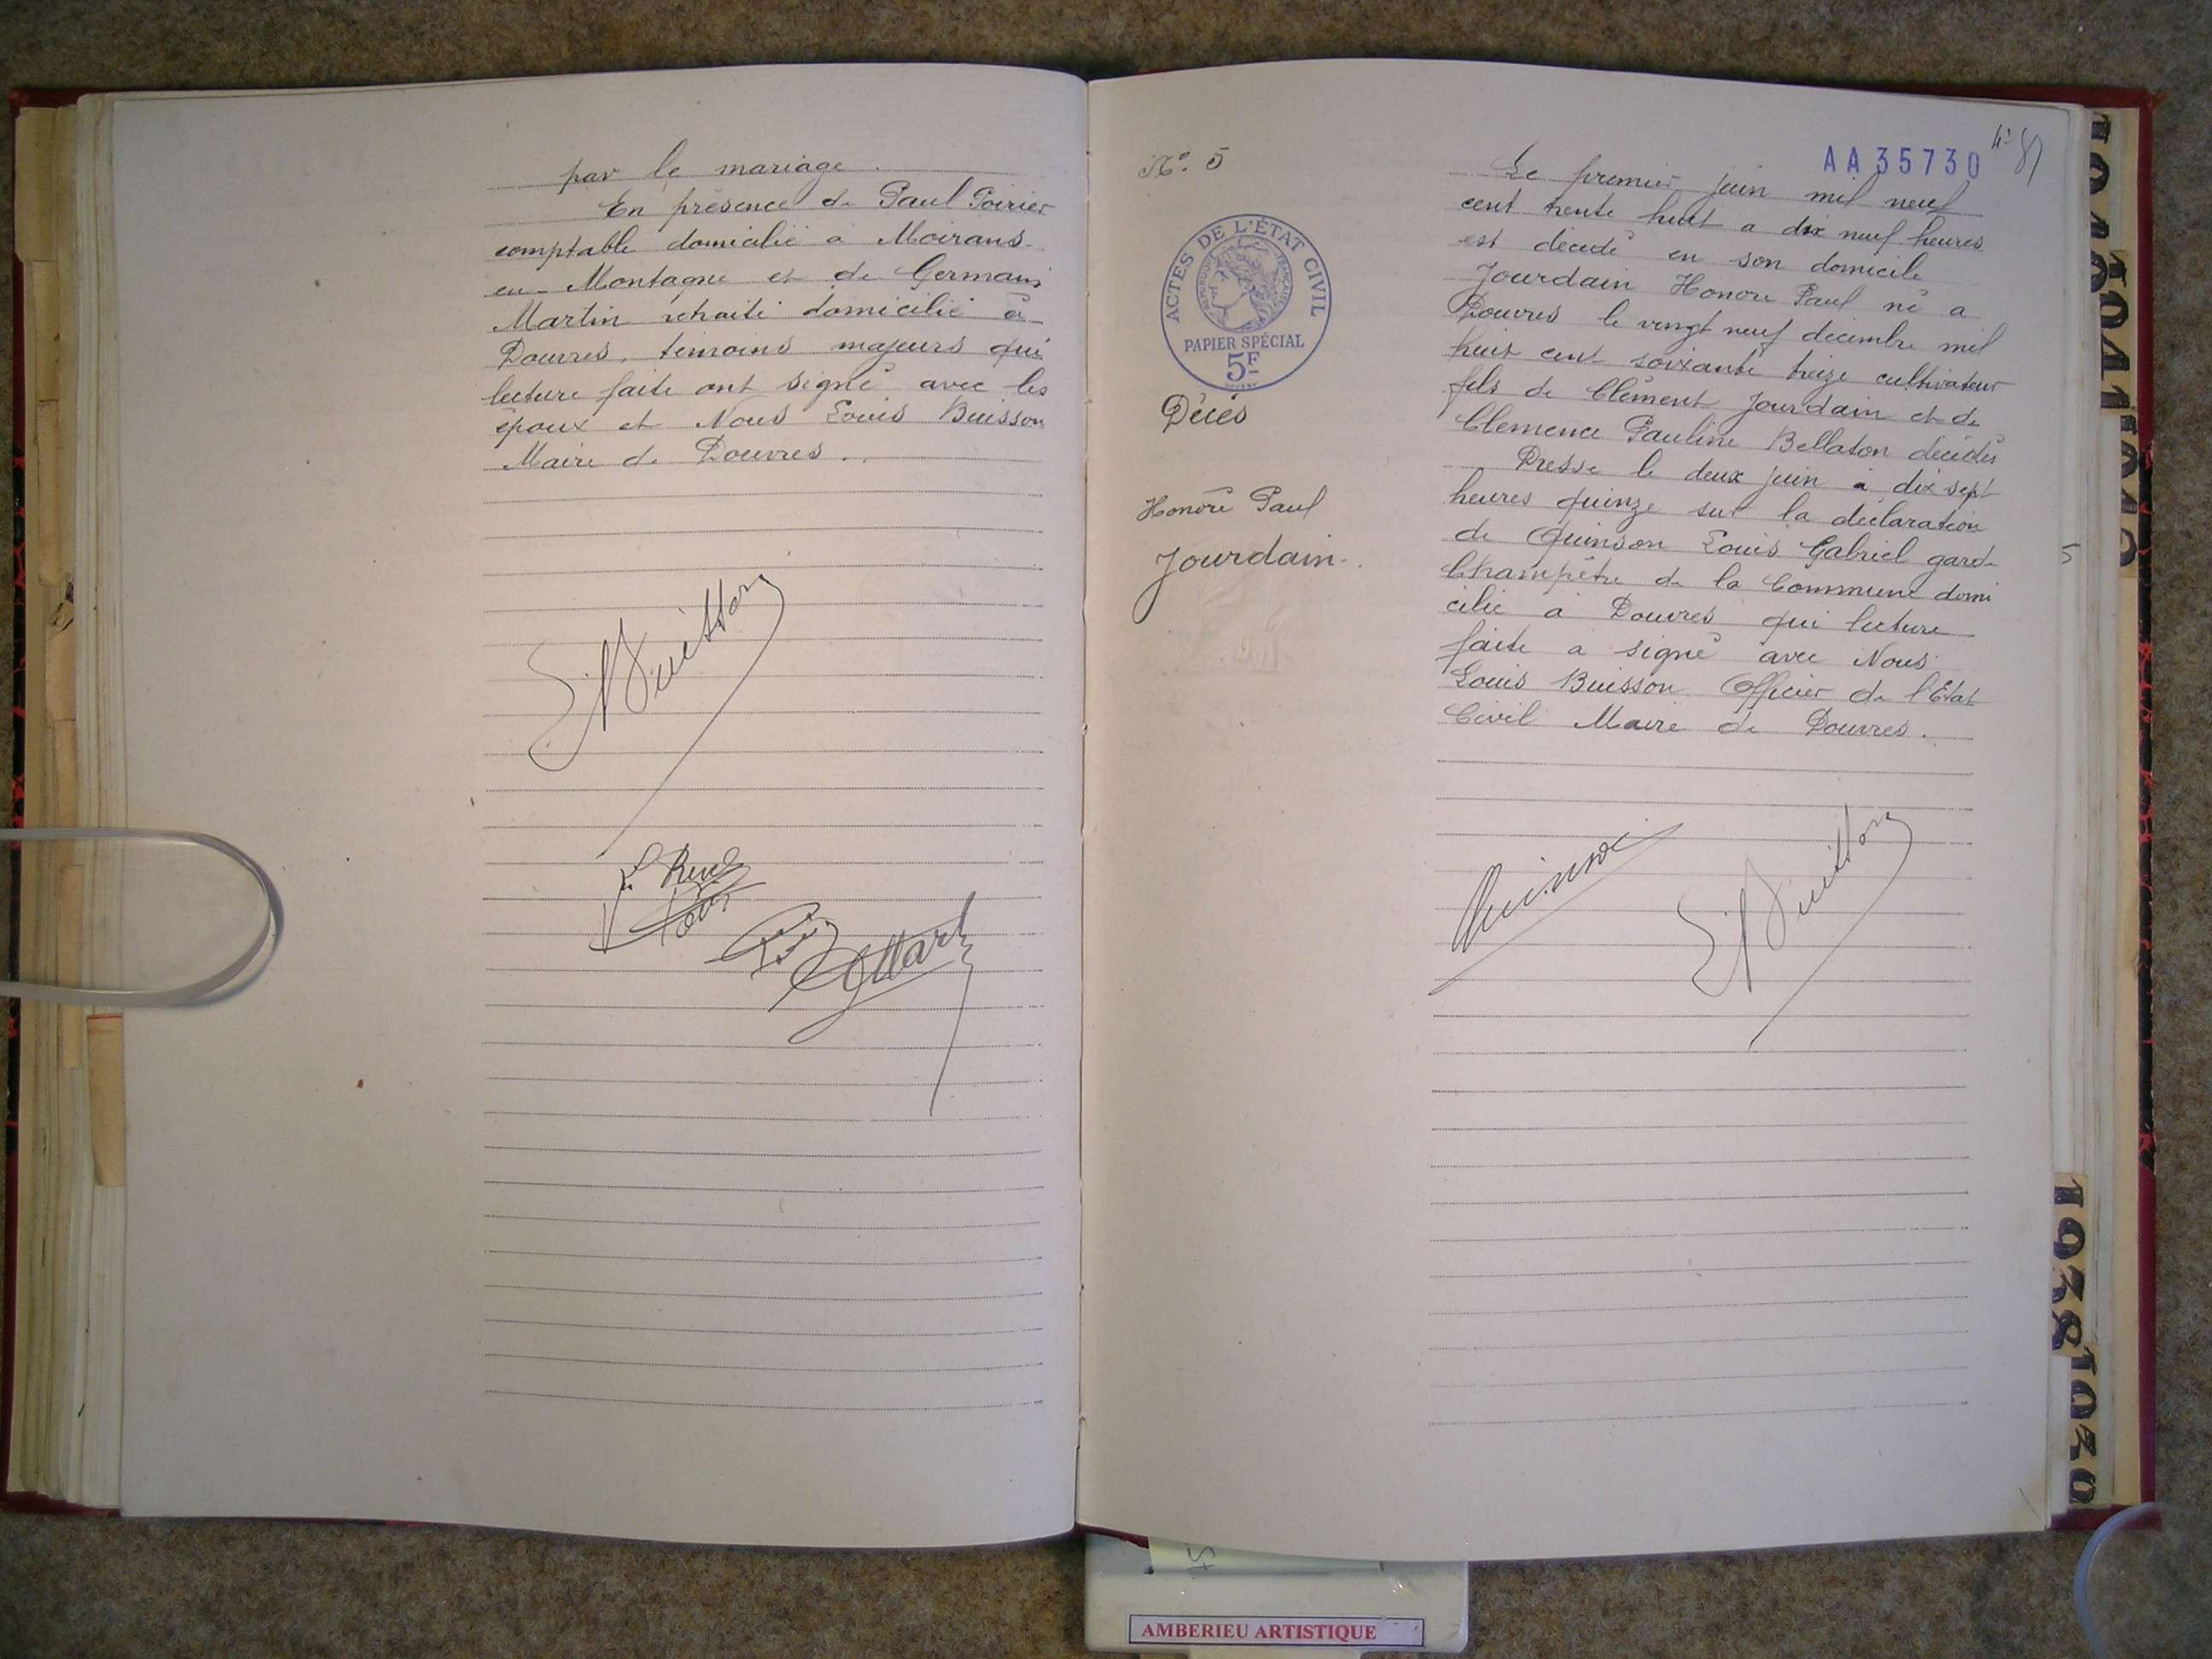 par le mariage.
En présence de Paul Poirier
comptable domicilié à Moirans-
en-Montagne et de Germain
Martin retraité domicilié à
Douvres, témoins majeurs qui
lecture faite ont signé avec les
époux et Nous Louis Buisson
Maire de Douvres.
N° 5
ACTES DE L'ÉTAT CIVIL
RÉPUBLIQUE FRANÇAISE
PAPIER SPÉCIAL
5F
Décès
Honoré Paul
Jourdain
AA35730
Le premier juin mil neuf
cent trente huit a dix neuf heures
est décédé en son domicile
Jourdain Honoré Paul né a
Douvres le vingt neuf décembre mil
huit cent soixante treize cultivateur
fils de Clément Jourdain et de
Clemence Pauline Bellaton décédés
Dressé le deux juin à dix sept
heures quinze sur la déclaration
de Quinson Louis Gabriel garde
Champêtre de la Commune domi
cilié à Douvres qui lecture
faite a signé avec Nous
Louis Buisson Officier de l'Etat
Civil Maire de Douvres.
Quinson
5
1938
AMBERIEU ARTISTIQUE